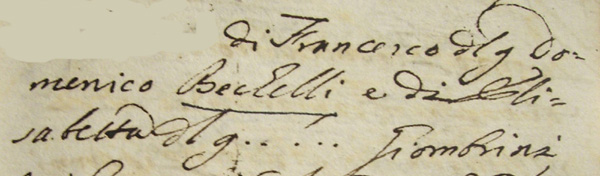 di Francesco dl q Do-
menico Beclelli e di Eli-
sabetta dl q...... Giombrini